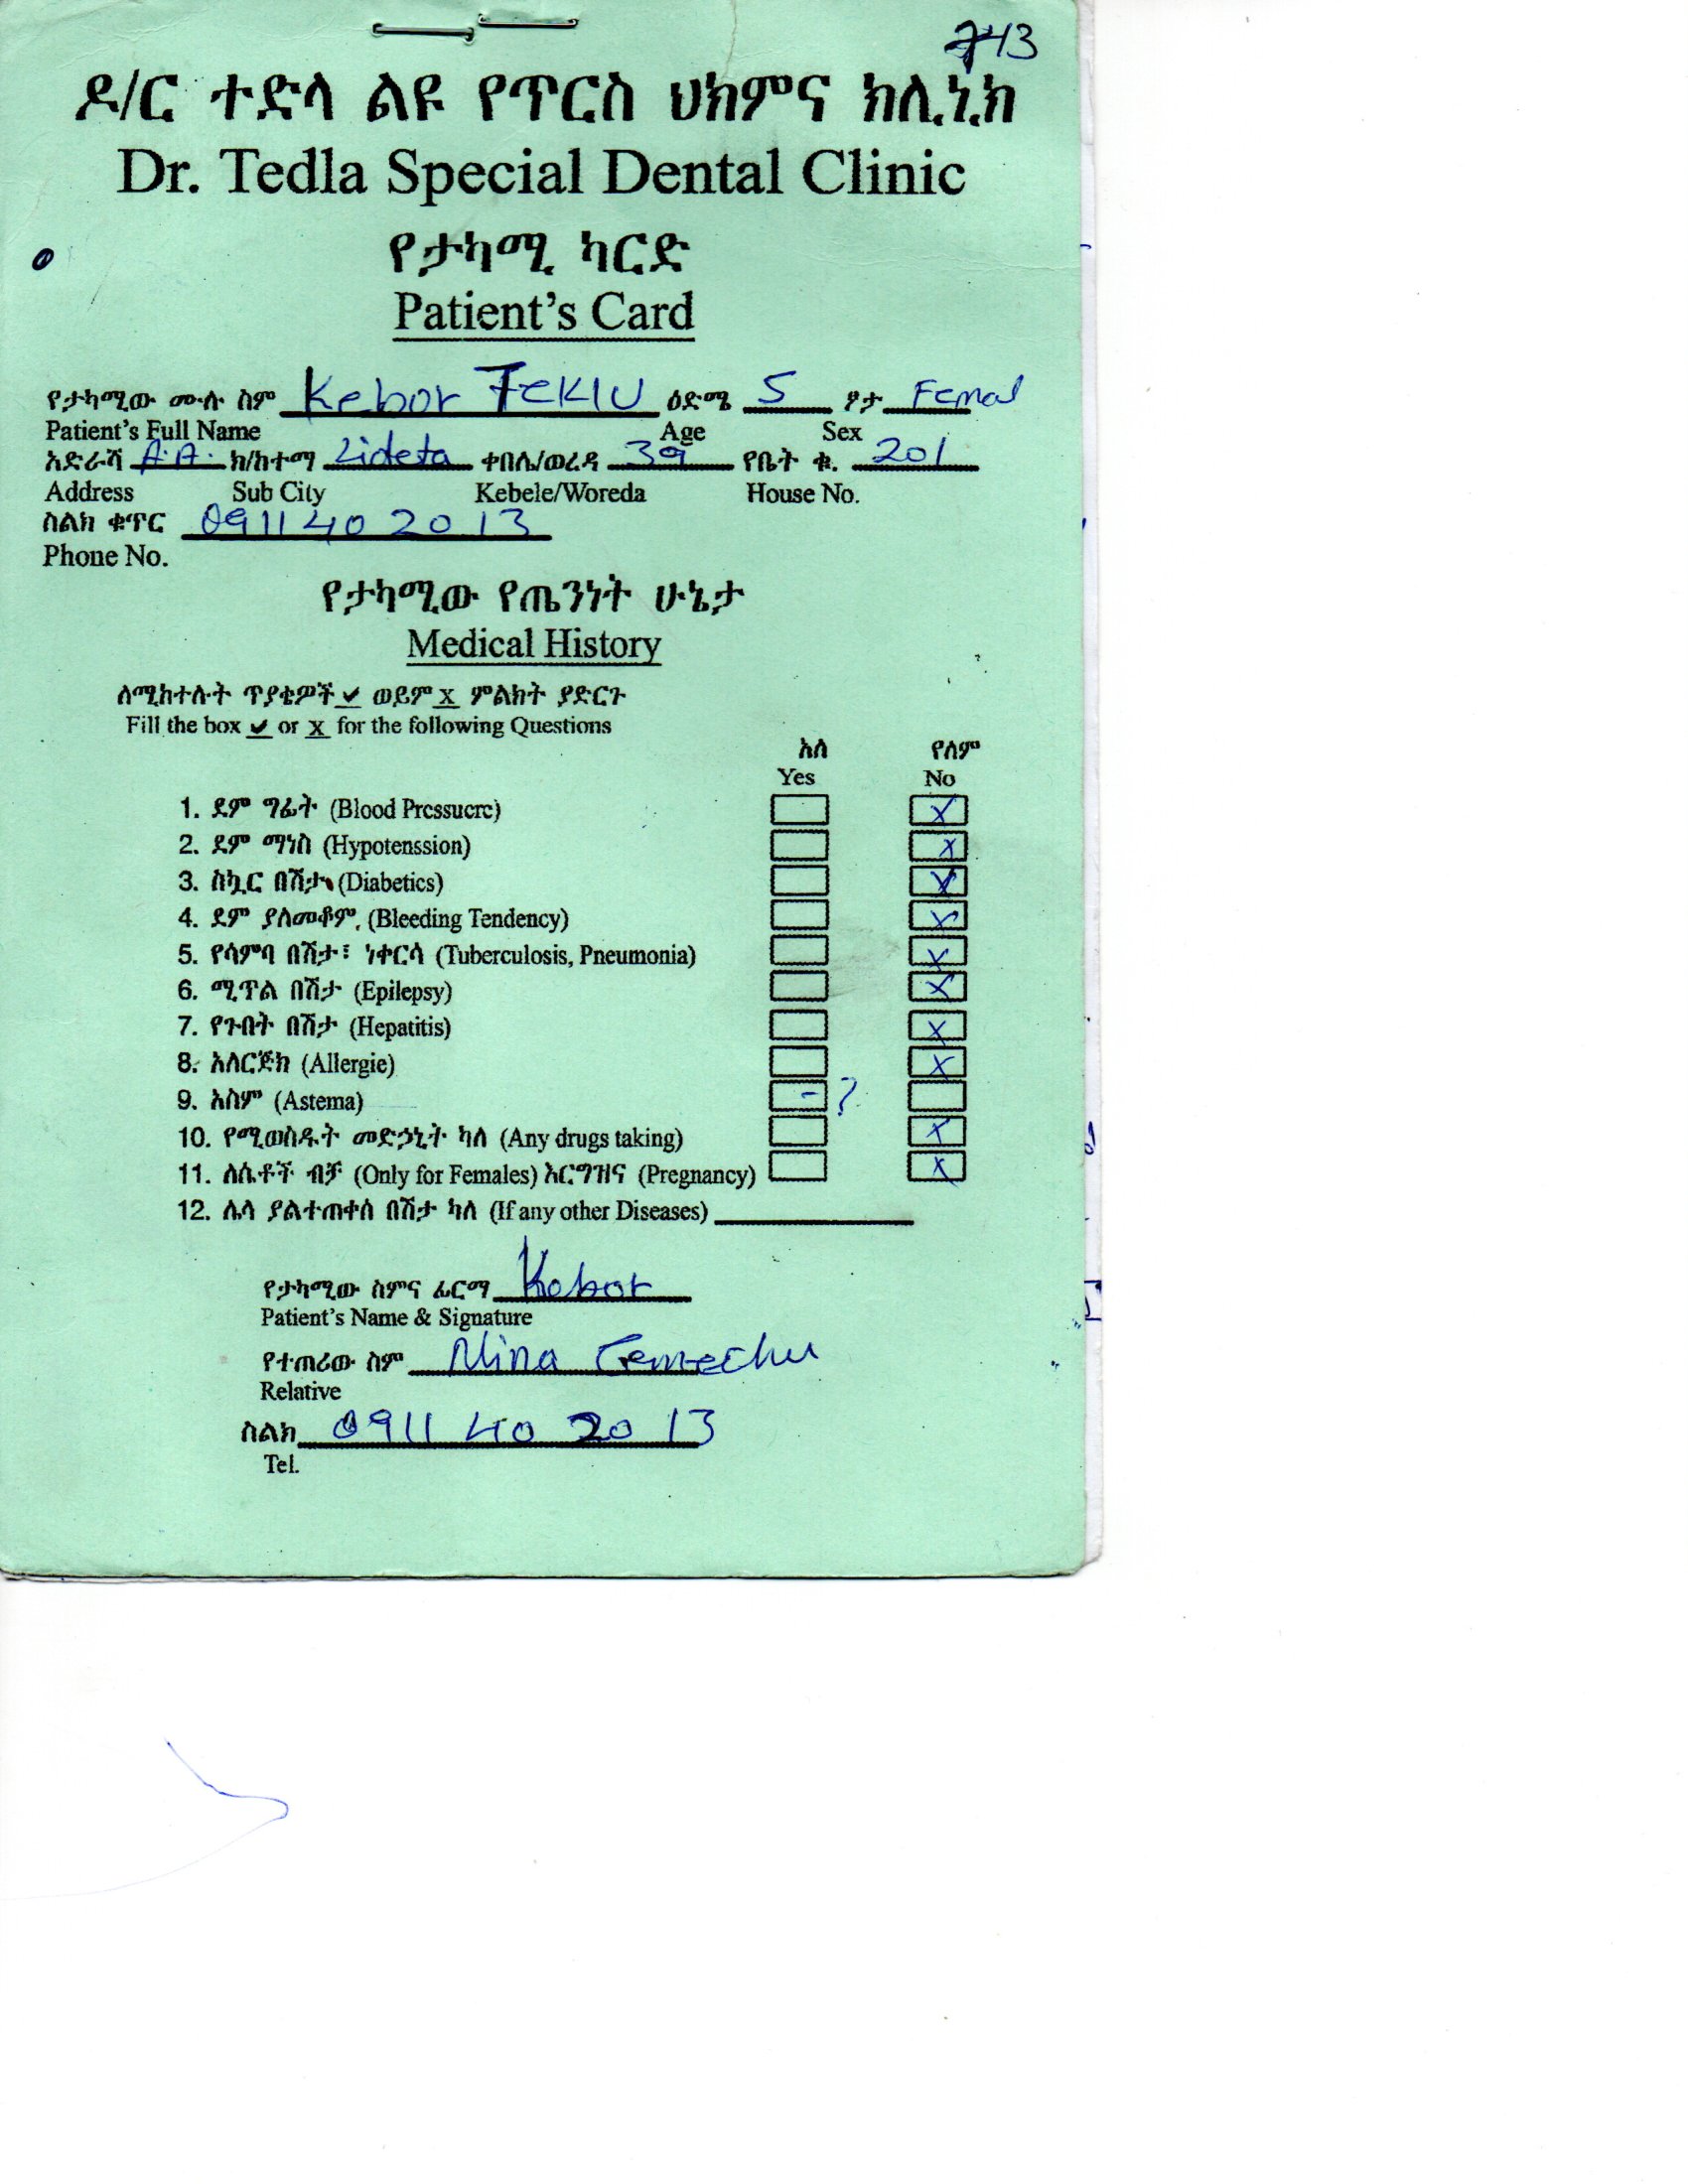 743
ዶ/ር ተድላ ልዩ የጥርስ ህክምና ክሊኒክ
Dr. Tedla Special Dental Clinic
የታካሚ ካርድ
Patient's Card
የታካሚው ሙሉ ስም Kebor Teklu ዕድሜ 5 ፆታ Femal
Patient's Full Name Age Sex
አድራሻ A.A. ክ/ከተማ Lideta ቀበሌ/ወረዳ 39 የቤት ቁ. 201
Address Sub City Kebele/Woreda House No.
ስልክ ቁጥር 0911 40 20 13
Phone No.
የታካሚው የጤንነት ሁኔታ
Medical History
ለሚከተሉት ጥያቄዎች ✓ ወይም X ምልክት ያድርጉ
Fill the box ✓ or X for the following Questions
አለ የለም
Yes No
1. ደም ግፊት (Blood Pressuere) X
2. ደም ማነስ (Hypotenssion) X
3. ስኳር በሽታ (Diabetics) X
4. ደም ያለመቆም (Bleeding Tendency) X
5. የሳምባ በሽታ፣ ነቀርሳ (Tuberculosis, Pneumonia) X
6. ሚጥል በሽታ (Epilepsy) X
7. የጉበት በሽታ (Hepatitis) X
8. አለርጅክ (Allergie) X
9. አስም (Astema) - ?
10. የሚወስዱት መድኃኒት ካለ (Any drugs taking) X
11. ለሴቶች ብቻ (Only for Females) እርግዝና (Pregnancy) X
12. ሌላ ያልተጠቀሰ በሽታ ካለ (If any other Diseases)
የታካሚው ስምና ፊርማ Kebor
Patient's Name & Signature
የተጠሪው ስም Nina Gemechu
Relative
ስልክ 0911 40 20 13
Tel.